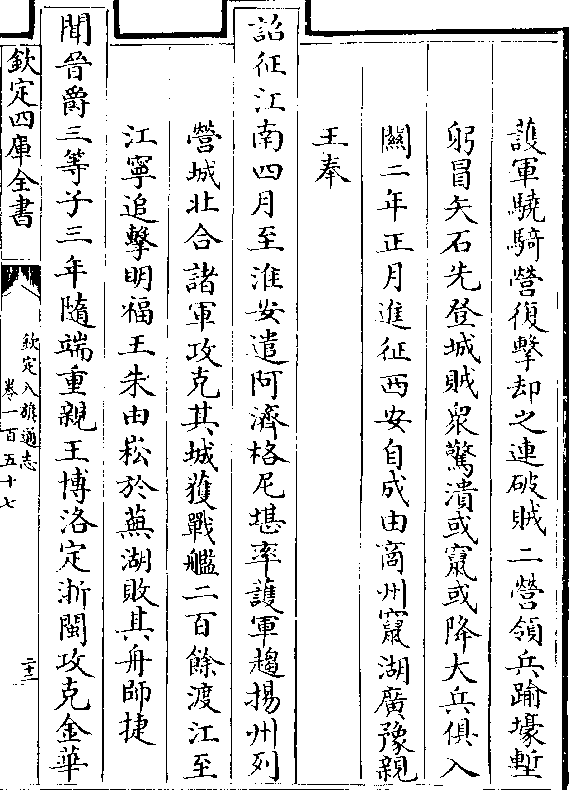 護軍驍騎營復擊却之連破賊二營領兵踰壕塹
躬冒矢石先登城賊衆驚潰或竄或降大兵俱入
關二年正月進征西安自成由商州竄湖廣豫親
王奉
詔征江南四月至淮安遣阿濟格尼堪率護軍趨揚州列
營城北合諸軍攻克其城獲戰艦二百餘渡江至
江寧追擊明福王朱由崧於蕪湖敗其舟師捷
聞晉爵三等子三年隨端重親王博洛定浙閩攻克金華
欽定四庫全書
欽定八旗通志
卷一百五十七
二十三